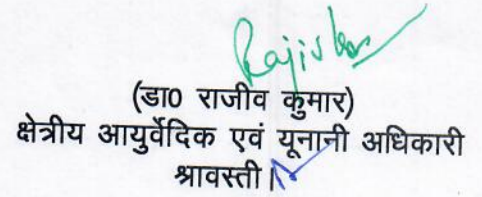 Rajiv Kr
(डा0 राजीव कुमार)
क्षेत्रीय आयुर्वेदिक एवं यूनानी अधिकारी
श्रावस्ती।